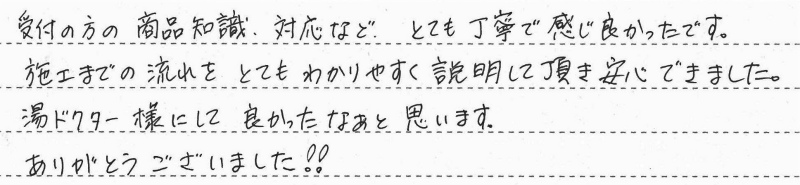 受付の方の商品知識、対応など、とても丁寧で感じ良かったです。
施工までの流れをとてもわかりやすく説明して頂き安心できました。
湯ドクター様にして良かったなぁと思います。
ありがとうございました!!